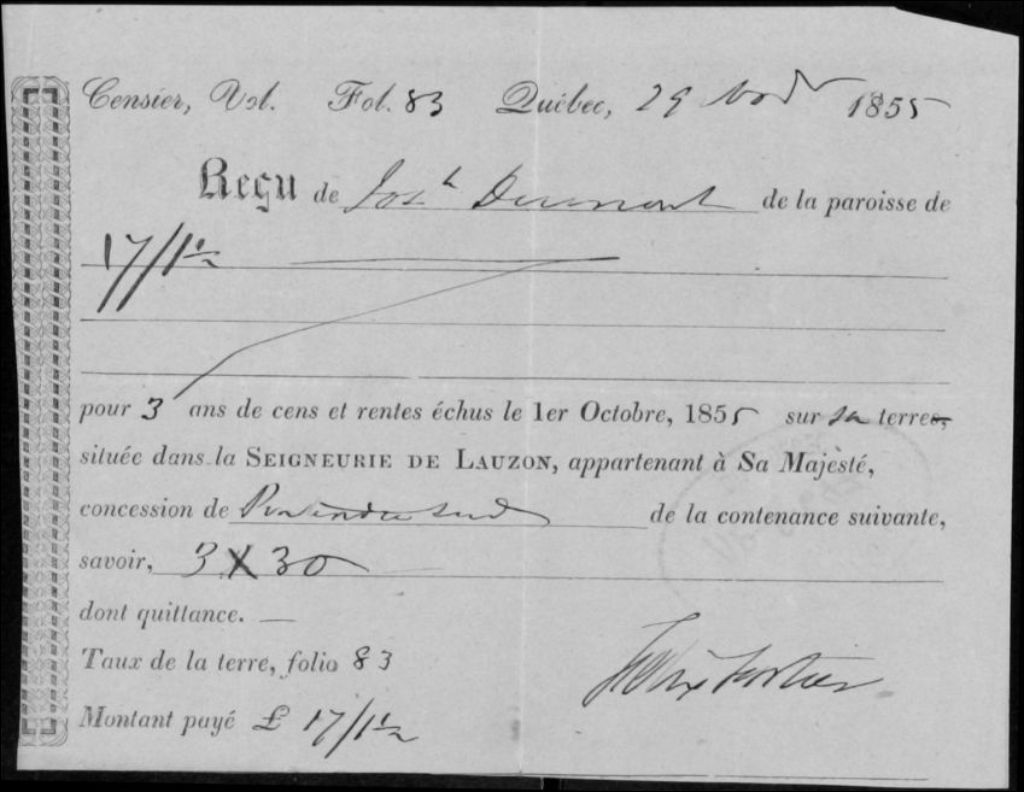 Censier, Vol. Fol. 83 Québec, 29 Novr 1855
Reçu de Josh Dumont de la paroisse de
17/1½
pour 3 ans de cens et rentes échus le 1er Octobre, 1855 sur sa terres,
située dans la SEIGNEURIE DE LAUZON, appartenant à Sa Majesté,
concession de sud de la contenance suivante,
savoir, 3 X 30
dont quittance. —
Taux de la terre, folio 83
Felix Fortier
Montant payé £ 17/1½